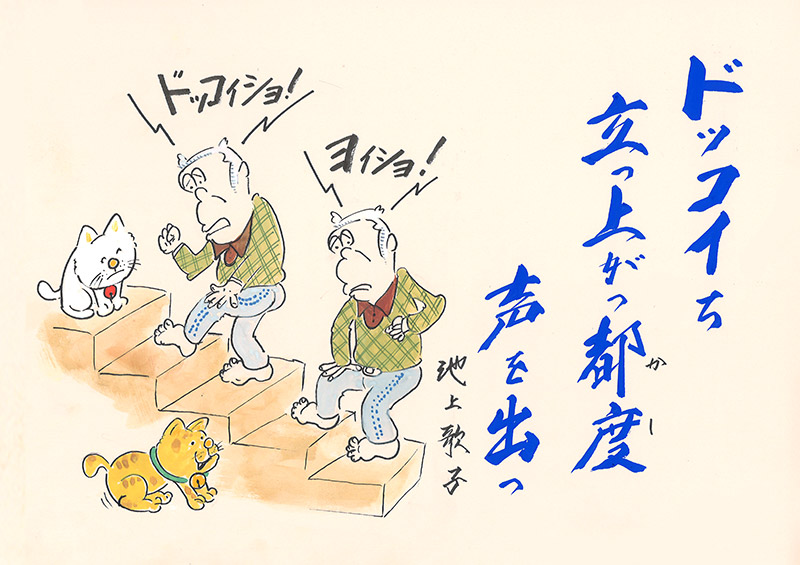 ドッコイち
立っ上がっ都度
かし
声を出っ
池上歌子
ヨイショ!
ドッコイショ!